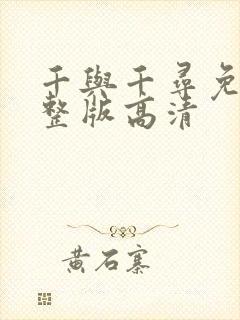 千與千尋免
整版高清
黃石寨